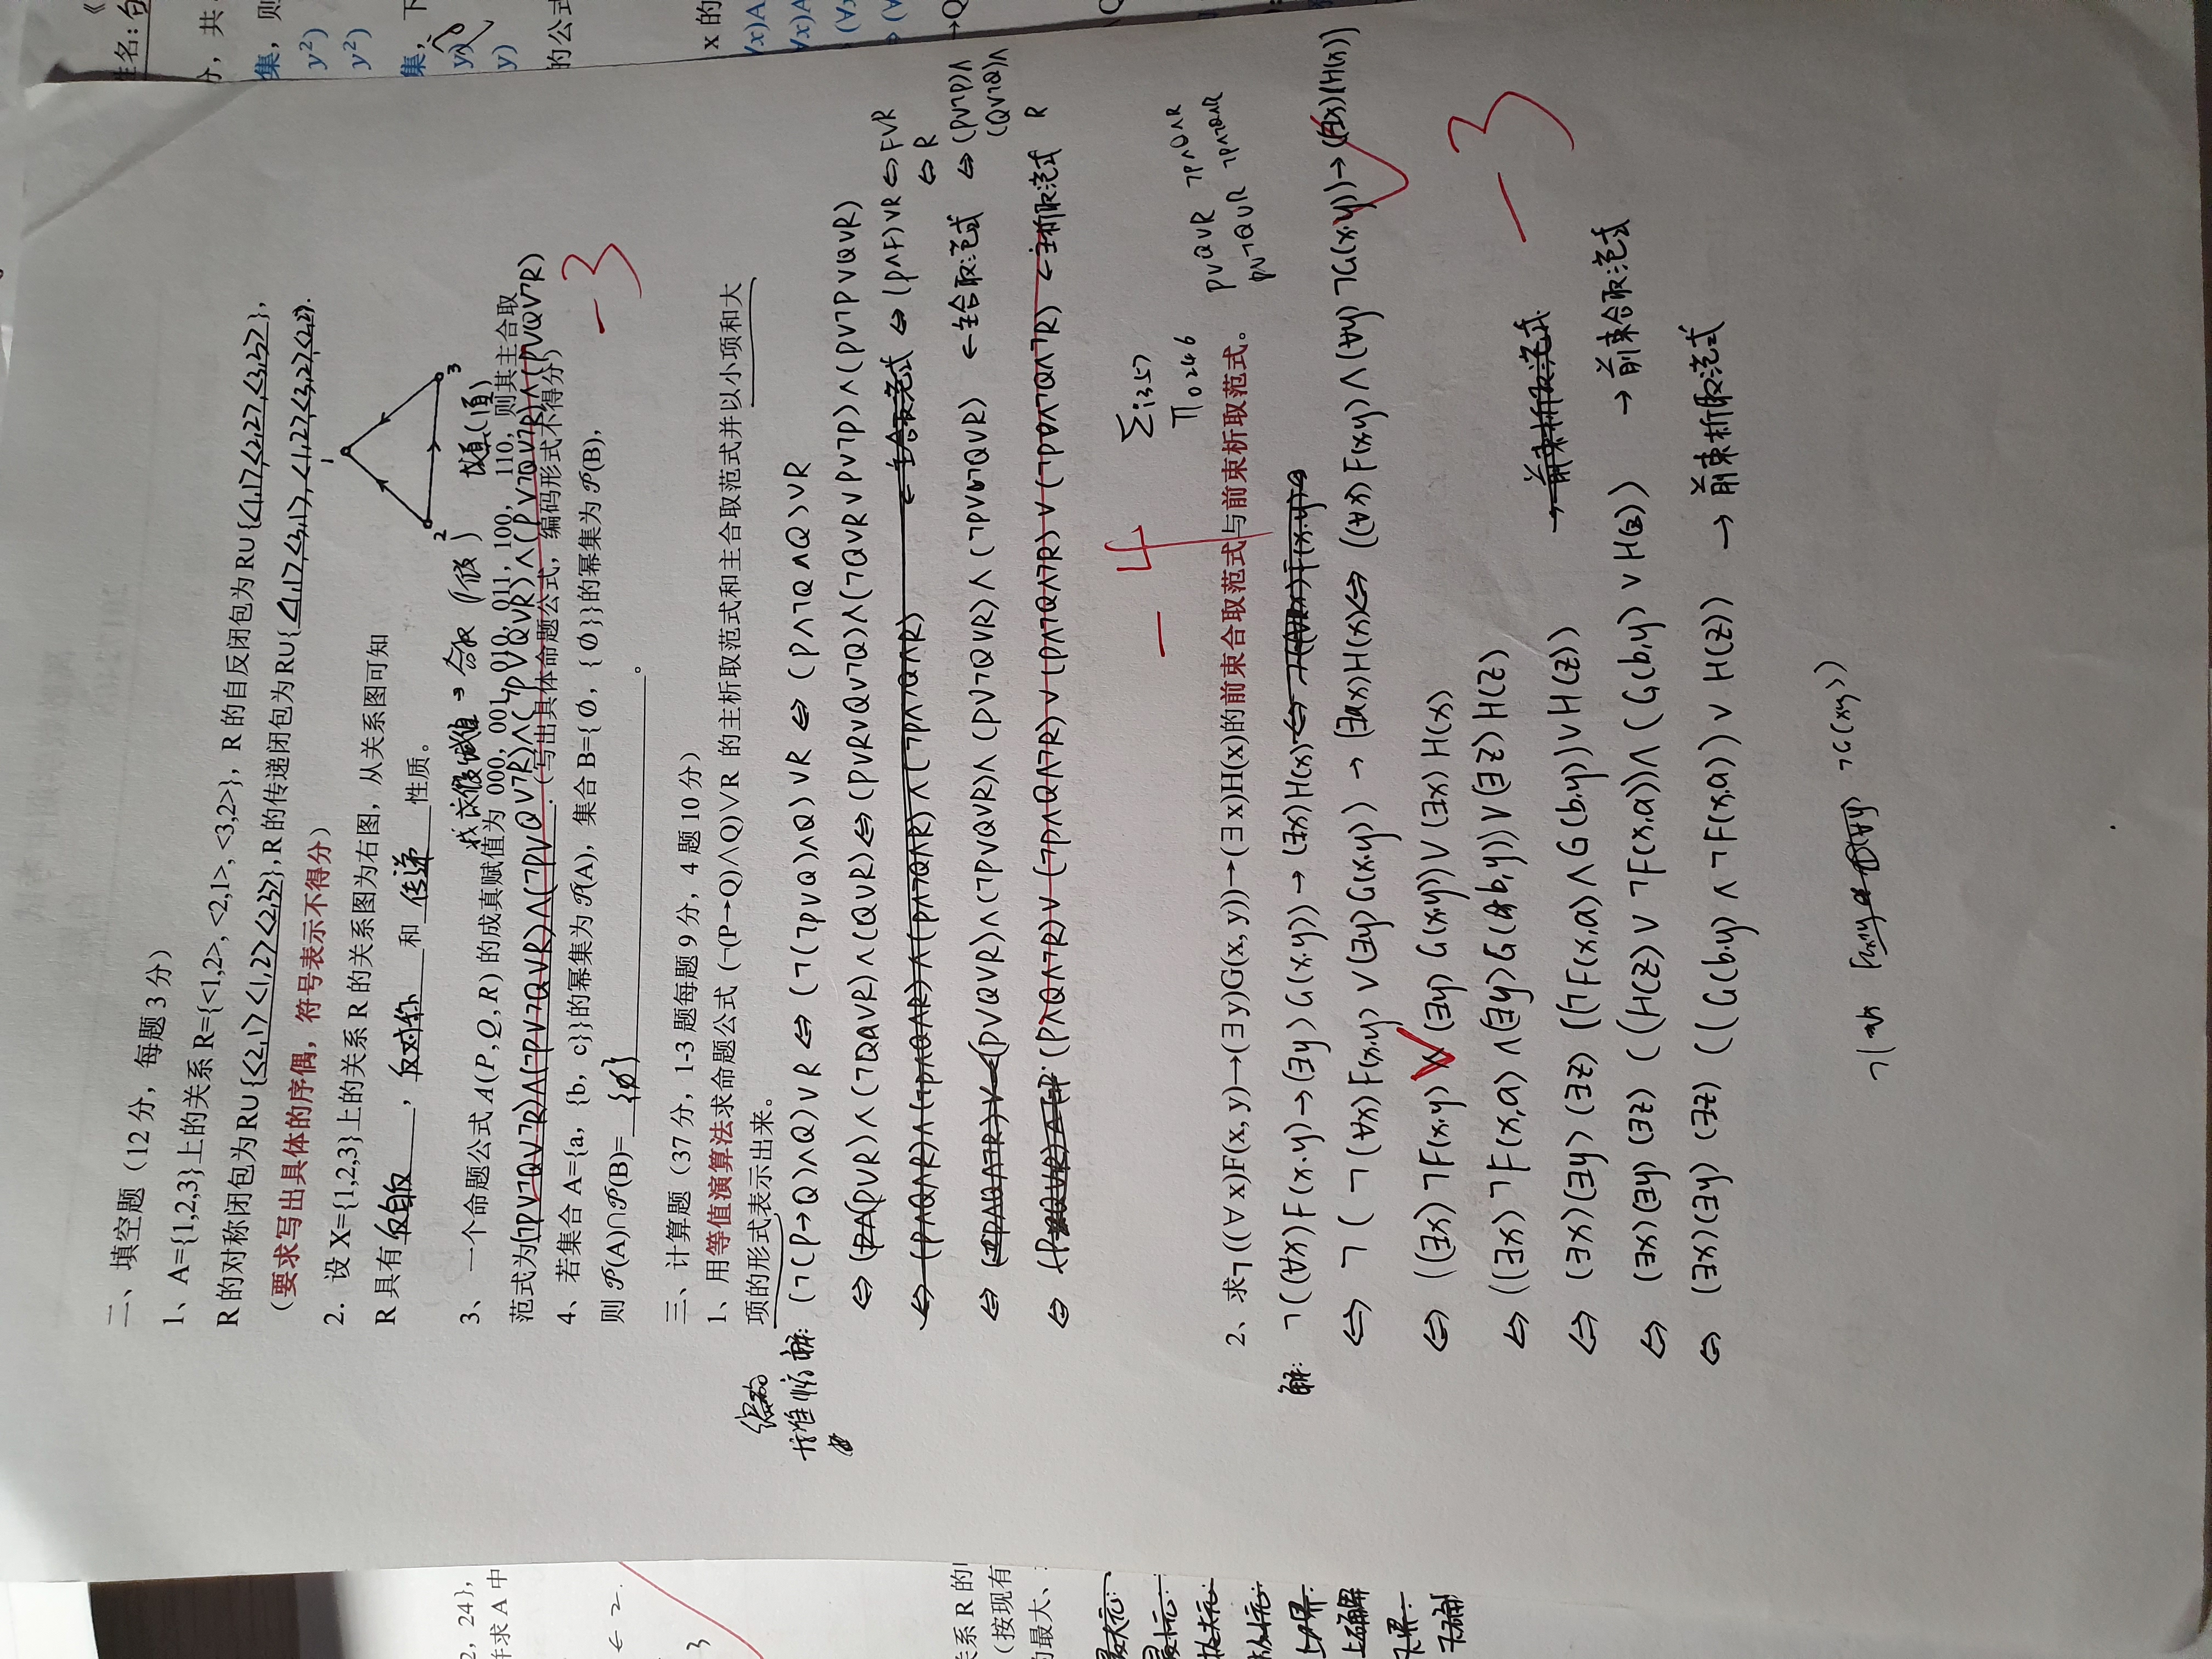 二、填空题（12 分，每题 3 分）
1、A={1,2,3}上的关系 R={<1,2>, <2,1>, <3,2>}，R 的自反闭包为 R∪{<1,1><2,2>,<3,3>}，
R 的对称闭包为 R∪{<2,1><1,2><2,3>},R 的传递闭包为 R∪{<1,1>,<3,1>,<1,2><3,2><2,2>}.
（要求写出具体的序偶，符号表示不得分）
2．设 X={1,2,3}上的关系 R 的关系图为右图，从关系图可知
R 具有 反自反 ，反对称 和 传递 性质。
1
2
3
找成假赋值→合取（假） 成真（1真）
3、 一个命题公式 A(P,Q,R) 的成真赋值为 000，001，010，011，100， 110，则其主合取
范式为(¬P∨¬Q∨¬R)∧(¬P∨¬Q∨R)∧(¬P∨Q∨¬R)∧(¬P∨Q∨R)∧(P∨¬Q∨¬R)∧(P∨Q∨¬R)
.（写出具体命题公式，编码形式不得分）
4、若集合 A={a，{b，c}}的幂集为 𝒫(A)，集合 B={∅，{∅}}的幂集为 𝒫(B)，
-3
则 𝒫(A)∩𝒫(B)= {∅} 。
三、计算题（37 分，1-3 题每题 9 分，4 题 10 分）
1、用等值演算法求命题公式 (¬(P→Q)∧Q)∨R 的主析取范式和主合取范式并以小项和大
项的形式表示出来。
解: (¬(P→Q)∧Q)∨R ⇔ (¬(¬P∨Q)∧Q)∨R ⇔ (P∧¬Q∧Q)∨R
⇔ (P∨R)∧(¬Q∨R)∧(Q∨R)⇔(P∨R∨Q∨¬Q)∧(¬Q∨R∨P∨¬P)∧(P∨¬P∨Q∨R)
⇔ (P∧Q∧R)∧(¬P∧Q∧R)∧(P∧¬Q∧R)∧(¬P∧¬Q∧R) ←主合取范式 ⇔(P∧F)∨R ⇔ F∨R
⇔ R
⇔ (P∨Q∨R)∧(¬P∨Q∨R)∧(P∨¬Q∨R)∧(¬P∨¬Q∨R) ←主合取范式 ⇔(P∨¬P)∧
(Q∨¬Q)∧
R
⇔ (P∧Q∧¬R)∨(¬P∧Q∧¬R)∨(P∧¬Q∧¬R)∨(¬P∧¬Q∧¬R) ←主析取范式
-4
Σ1357
Π0246
P∨Q∨R ¬P∧Q∧R
P∨¬Q∨R ¬P∧¬Q∧R
2、求¬((∀x)F(x, y)→(∃y)G(x, y))→(∃x)H(x)的前束合取范式与前束析取范式。
解: ¬((∀x)F(x,y)→(∃y)G(x,y))→(∃x)H(x)
⇔ ¬(¬(∀x)F(x,y)∨(∃y)G(x,y))→(∃x)H(x)⇔((∀x)F(x,y)∧(∀y)¬G(x,y))→(∃x)(H(x))
⇔ ((∃x)¬F(x,y)∨(∃y)G(x,y))∨(∃x)H(x)
⇔((∃x)¬F(x,a)∧(∃y)G(b,y))∨(∃z)H(z)
-3
⇔ (∃x)(∃y)(∃z)((¬F(x,a)∧G(b,y))∨H(z)) →前束析取范式
⇔ (∃x)(∃y)(∃z)((H(z)∨¬F(x,a))∧(G(b,y)∨H(z)) →前束合取范式
⇔ (∃x)(∃y)(∃z)((G(b,y)∧¬F(x,a))∨H(z)) →前束析取范式
¬G(xy))